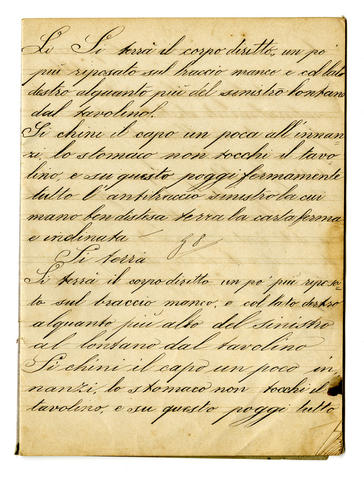 Li Si terrà il corpo diritto, un pò
più riposato sul braccio manco e col lato
destro alquanto più del sinistro lontano
dal tavolino!
Si chini il capo un poca all'innan=
zi, lo stomaco non tocchi il tavo
lino, e su questo poggi fermamente
tutto l'antibraccio sinistro la cui
mano ben distesa terrà la carta ferma
e inclinata
Si terrà
Si terrà il corpo diritto un pò più riposa-
to sul braccio manco, e col lato destro
alquanto più alto del sinistro
al lontano dal tavolino
Si chini il capo un poco in-
nanzi, lo stomaco non tocchi il
tavolino, e su questo poggi tutto